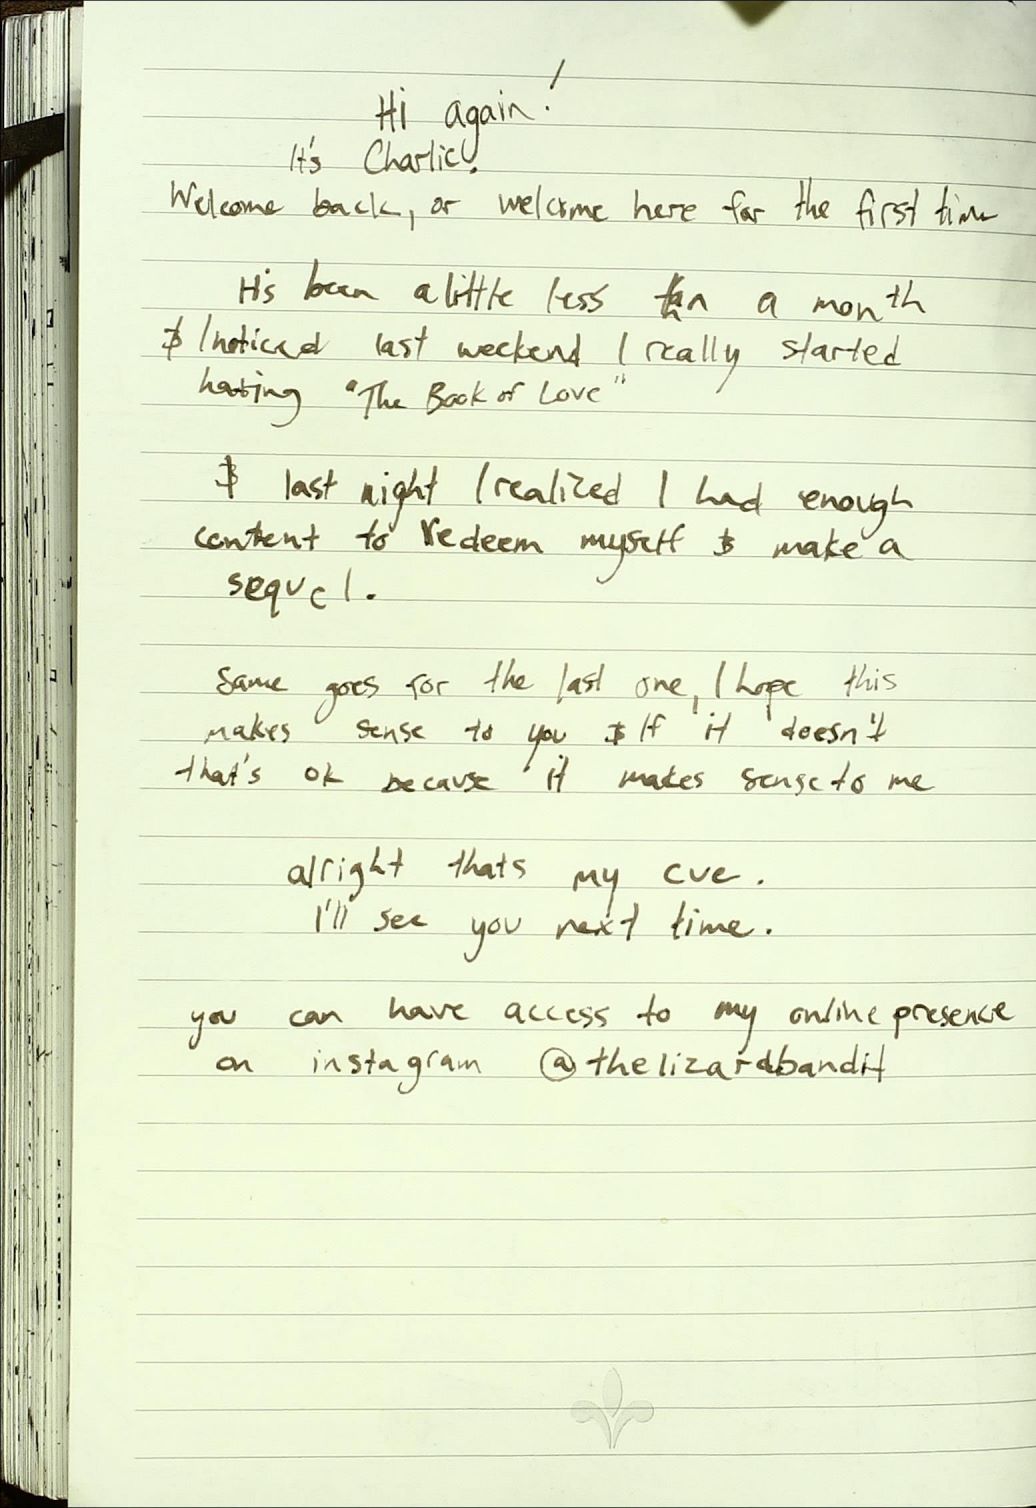 Hi again!
It's Charlie.
Welcome back, or welcome here for the first time
It's been a little less than a month
& I noticed last weekend I really started
hating "The Book of Love"
& last night I realized I had enough
content to redeem myself & make a
sequel.
Same goes for the last one, I hope this
makes sense to you & If it doesn't
that's ok because it makes sense to me
alright thats my cue.
I'll see you next time.
you can have access to my online presence
on instagram @thelizardbandit